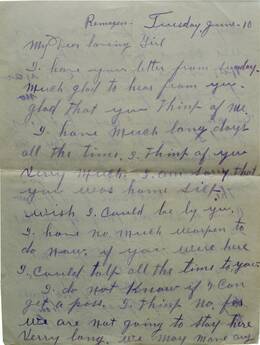 Remagen. Tuesday, June-10
My Dear loving Girl
I have your letter from sunday.
Much glad to hear from you.
glad that you think of me.
I have Much long days
all the time. I think of you
Verry Much. I am sorry that
you was home sick.
wish I could be by you.
I have no Much to
do now. if you were here
I could talk all the time to you.
I do not Know if I Can
get a pass. I think no, for
We are not going to stay here
Verry long. We may move any